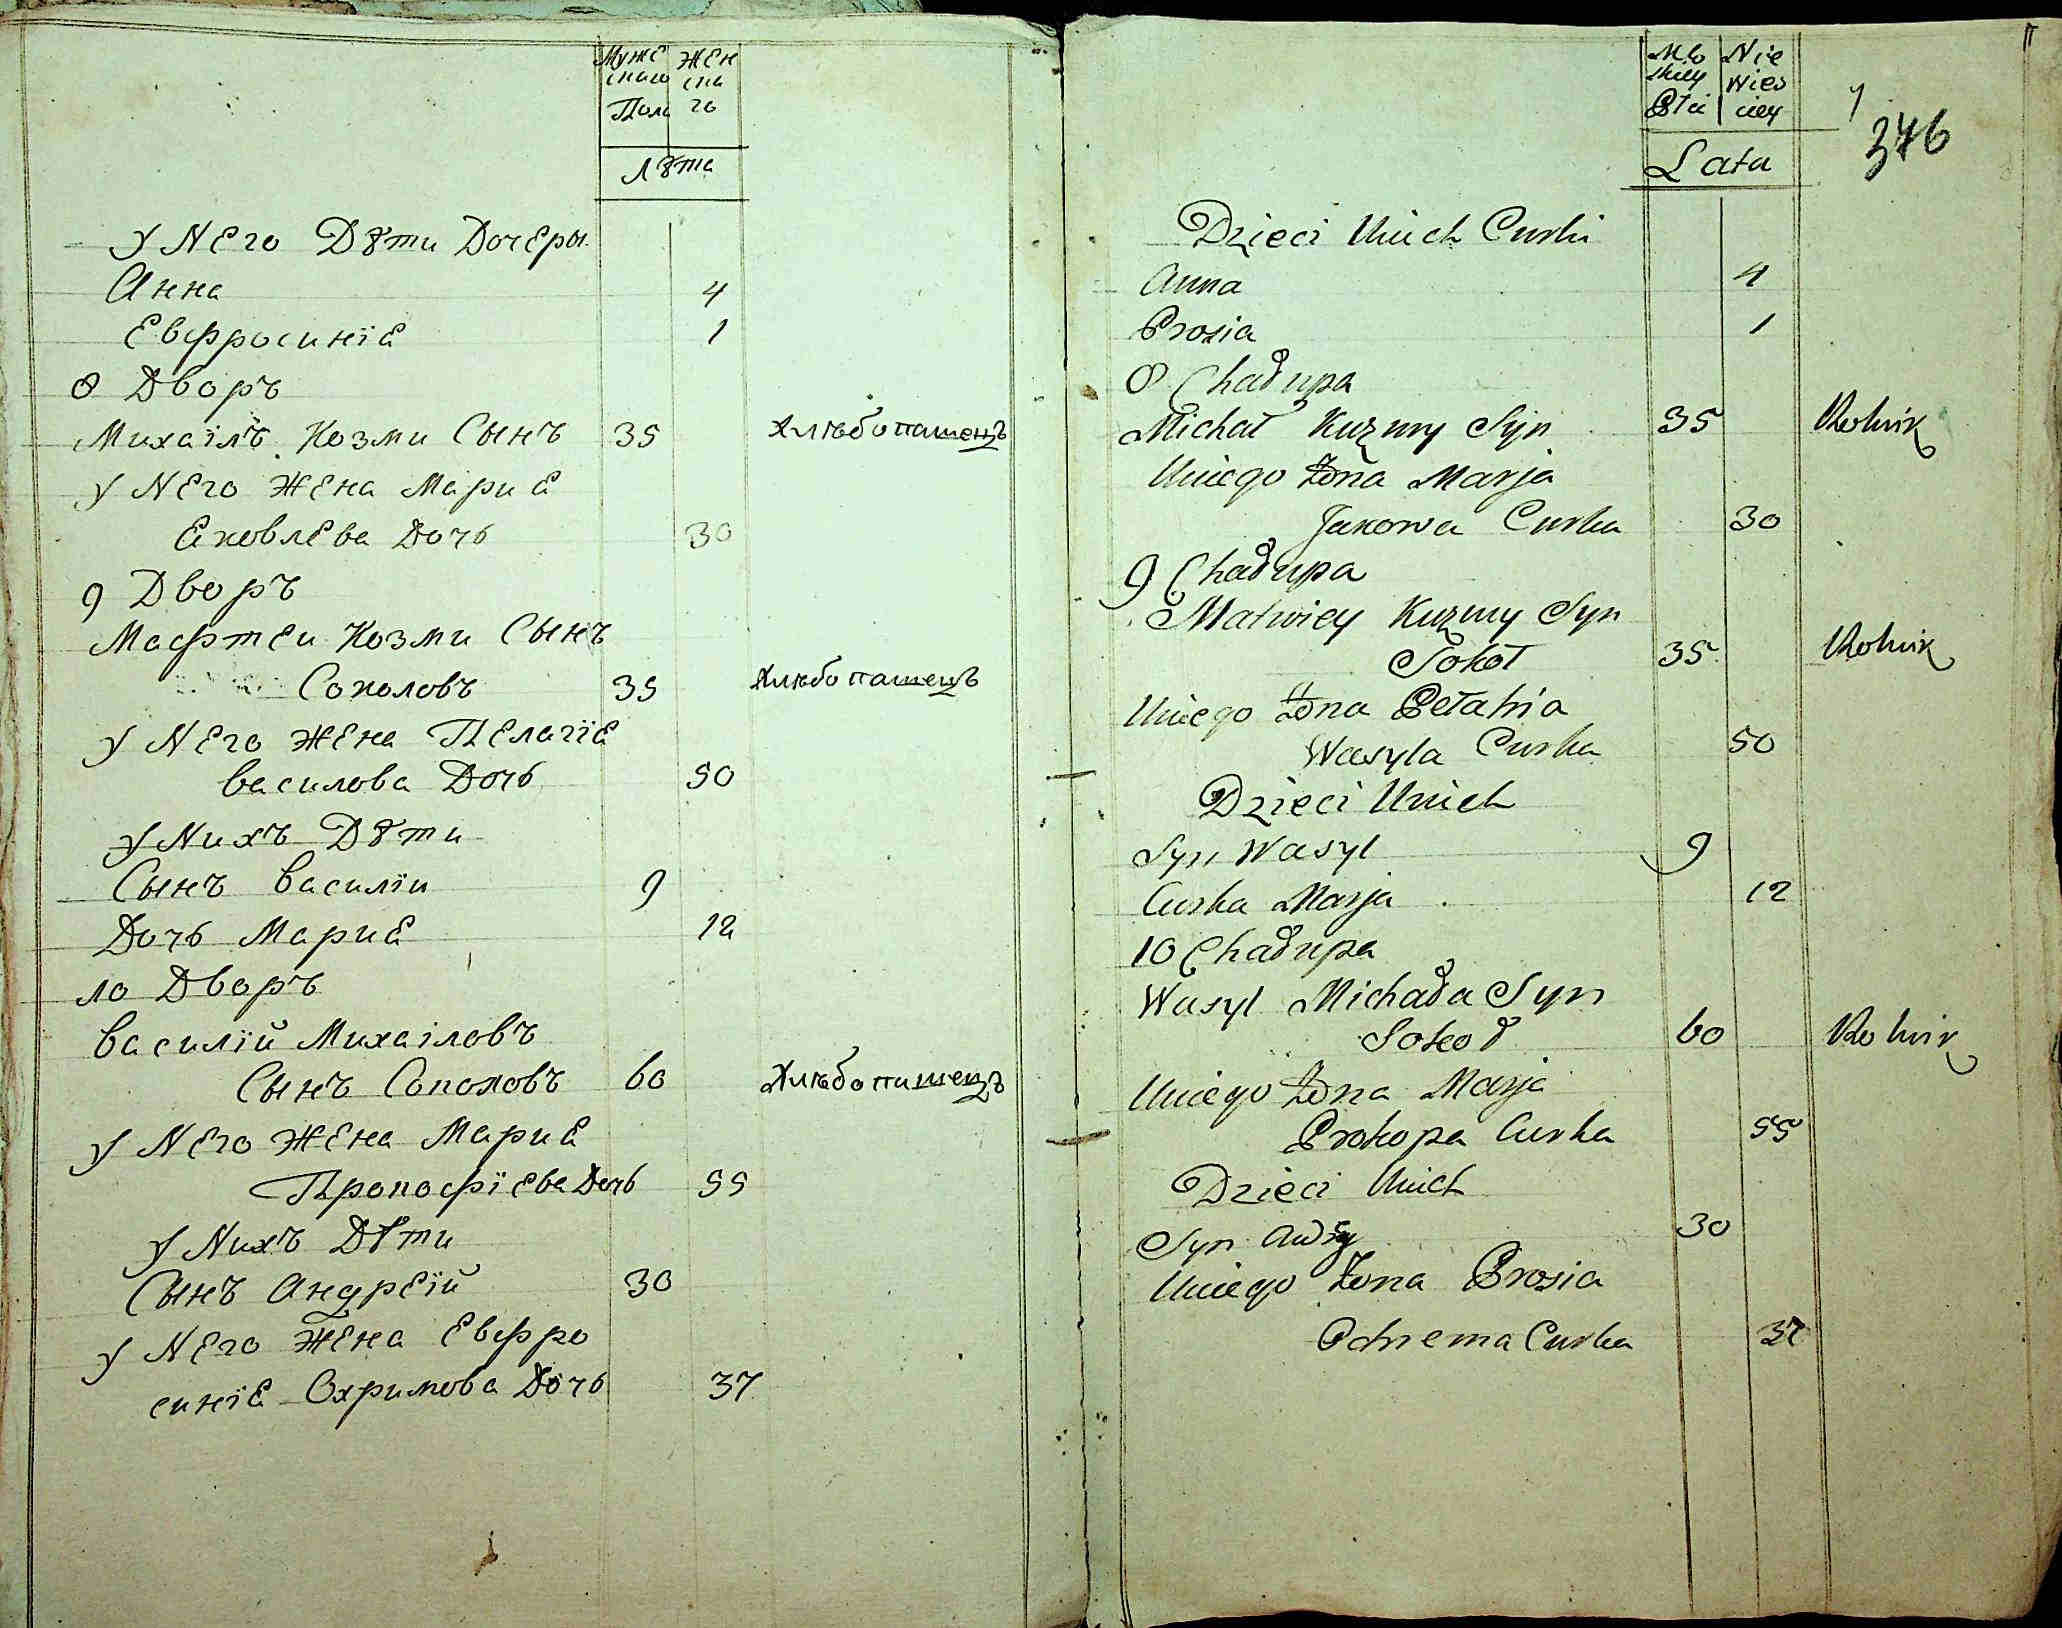 Муже ЖЕн
скаго ска
Пола го
Лѣта
У Него Дѣти Дочеры
Анна 4
Евфросинїе 1
8 Дворъ
Михаілъ Козми Сынъ 35 Хлѣбопашецъ
У Него Жена Марие
Еяковлева Дочь 30
9 Дворъ
Мафтеи Козми Сынъ
Соколовъ 35 Хлѣбопашецъ
У Него Жена Пелагїе
василова Дочь 50
У Нихъ Дѣти
Сынъ василїи 9
Дочь Марие 12
10 Дворъ
василїй Михаіловъ
Сынъ Соколовъ 60 Хлѣбопашецъ
У Него Жена Марие
Прокофїева Дочь 55
У Нихъ Дѣти
Сынъ Андреїй 30
У Него Жена Евфро
синїе Охримова Дочь 37
Nie
skiey Wies
Płci ciey
Lata
346
Dzieci Unich Curki
Anna 4
Prosia 1
8 Chałupa
Michał Kuzmy Syn 35 Rolnik
Uniego Żona Marja
Jakowa Curka 30
9 Chałupa
Matwiey Kuzmy Syn
Sokoł 35 Rolnik
Uniego Żona Pełahia
Wasyla Curka 50
Dzieci Unich
Syn Wasyl 9
Curka Marja 12
10 Chałupa
Wasyl Michała Syn
Sokoł 60 Rolnik
Uniego Żona Marja
Prokopa Curka 55
Dzieci Unich
Syn 30
Uniego Żona Prosia
Ochrema Curka 37